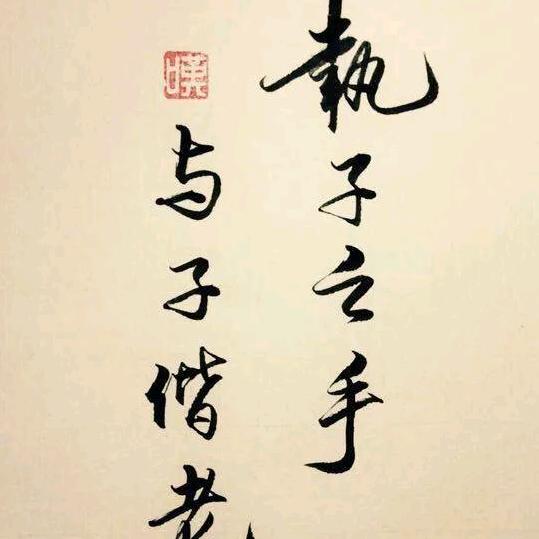 執子之手
与子偕老
嘆